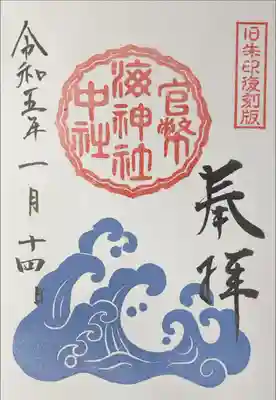 旧朱印復刻版
奉拝
官幣
海神社
中社
令和五年一月十四日